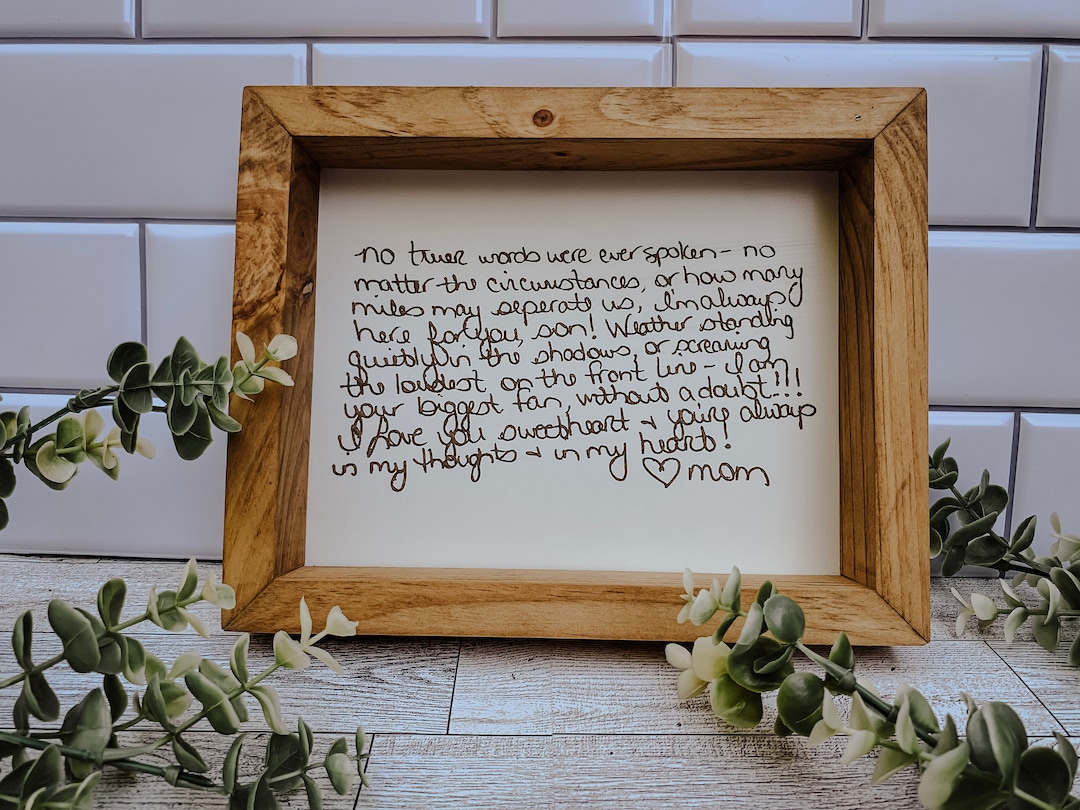 no truer words were ever spoken - no
matter the circumstances, or how many
miles may seperate us, i'm always
here for you, son! Weather standing
quietly in the shadows, or screaming
the loudest on the front line - I am
your biggest fan, without a doubt!!!
i love you sweetheart + you're always
in my thoughts + in my heart!
♡ mom